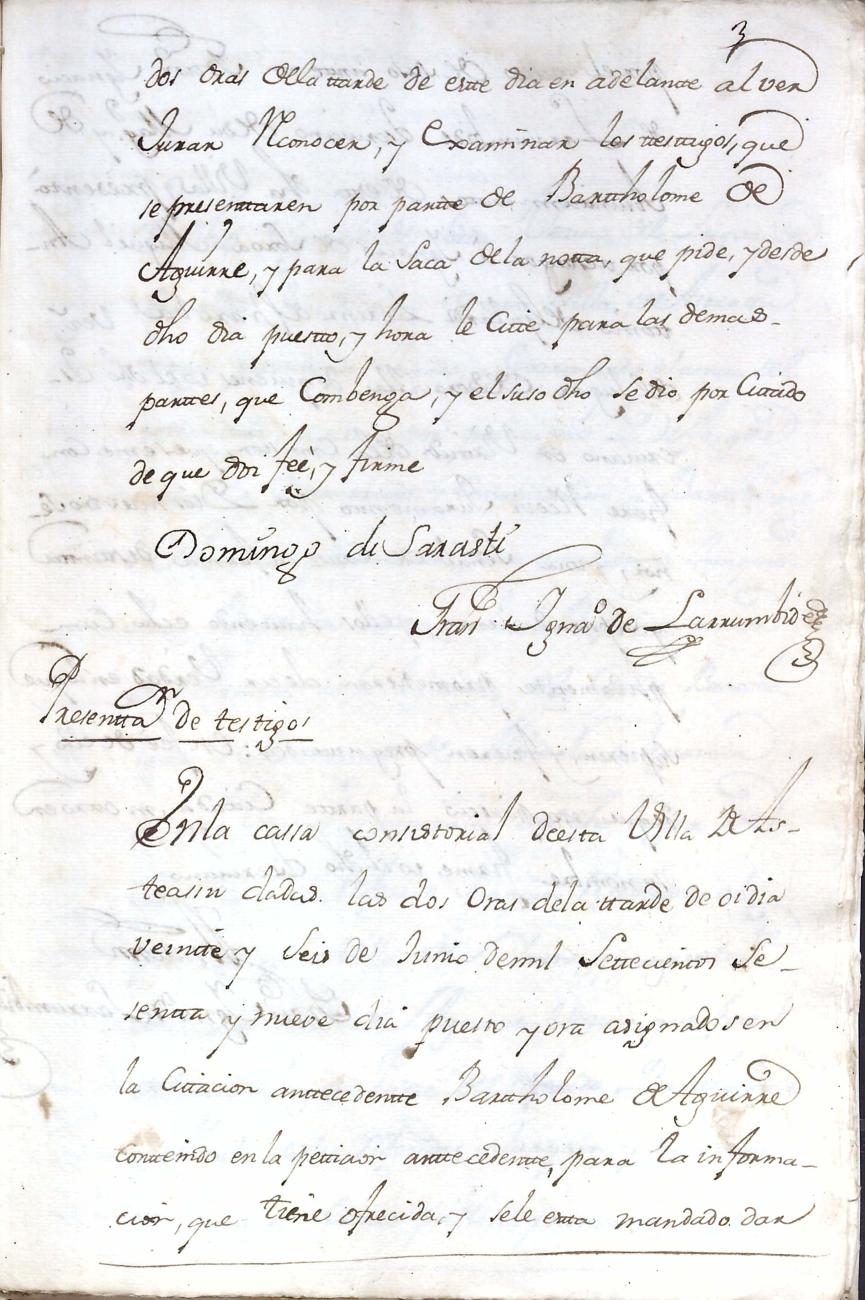 3
dos oras della ttarde de estte dia en adelantte al ver
Jurar Rconocer, y Examinar los ttesttigos, que
se presenttaren por partte de Barttholome de
Aguirre, y para la Saca de la notta, que pide, y desde
dho dia puestto, y hora le Citte para las demas
parttes, que Combenga, y el suso dho se dio por Cittado
de que doi feé, y firme
Domingo de Sarasti
Fran.co Ignaº de Larrumbide
Presentta.n de testigos
En la cassa consistorial de esta Villa de As-
teasu dadas las dos Oras de la ttarde de oi dia
veintte y Seis de Junio de mil Settecientos Se-
sentta y nueve dia puesto y ora asignados en
la Cittacion anttecedentte Barttholome de Aguirre
conttenido en la petticion anttecedentte, para la informa-
cion, que tiene ofrecida, y se le estta mandado dar